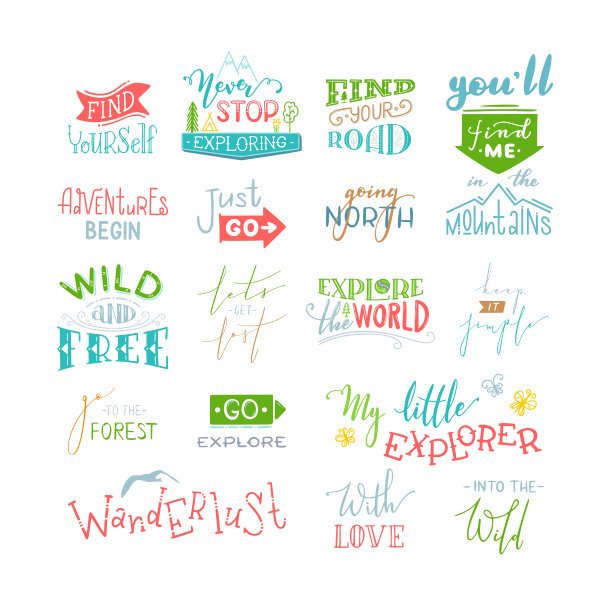 FIND
YOURSELF
Never
STOP
EXPLORING
FIND
YOUR
ROAD
you'll
find
ME
in the
MOUNTAINS
ADVENTURES
BEGIN
Just
GO
going
NORTH
WILD
AND
FREE
lets
-GET-
lost
EXPLORE
the WORLD
keep
IT
simple
go
-TO THE-
FOREST
GO
EXPLORE
My little
EXPLORER
WANDERLUST
With
LOVE
-INTO THE-
Wild